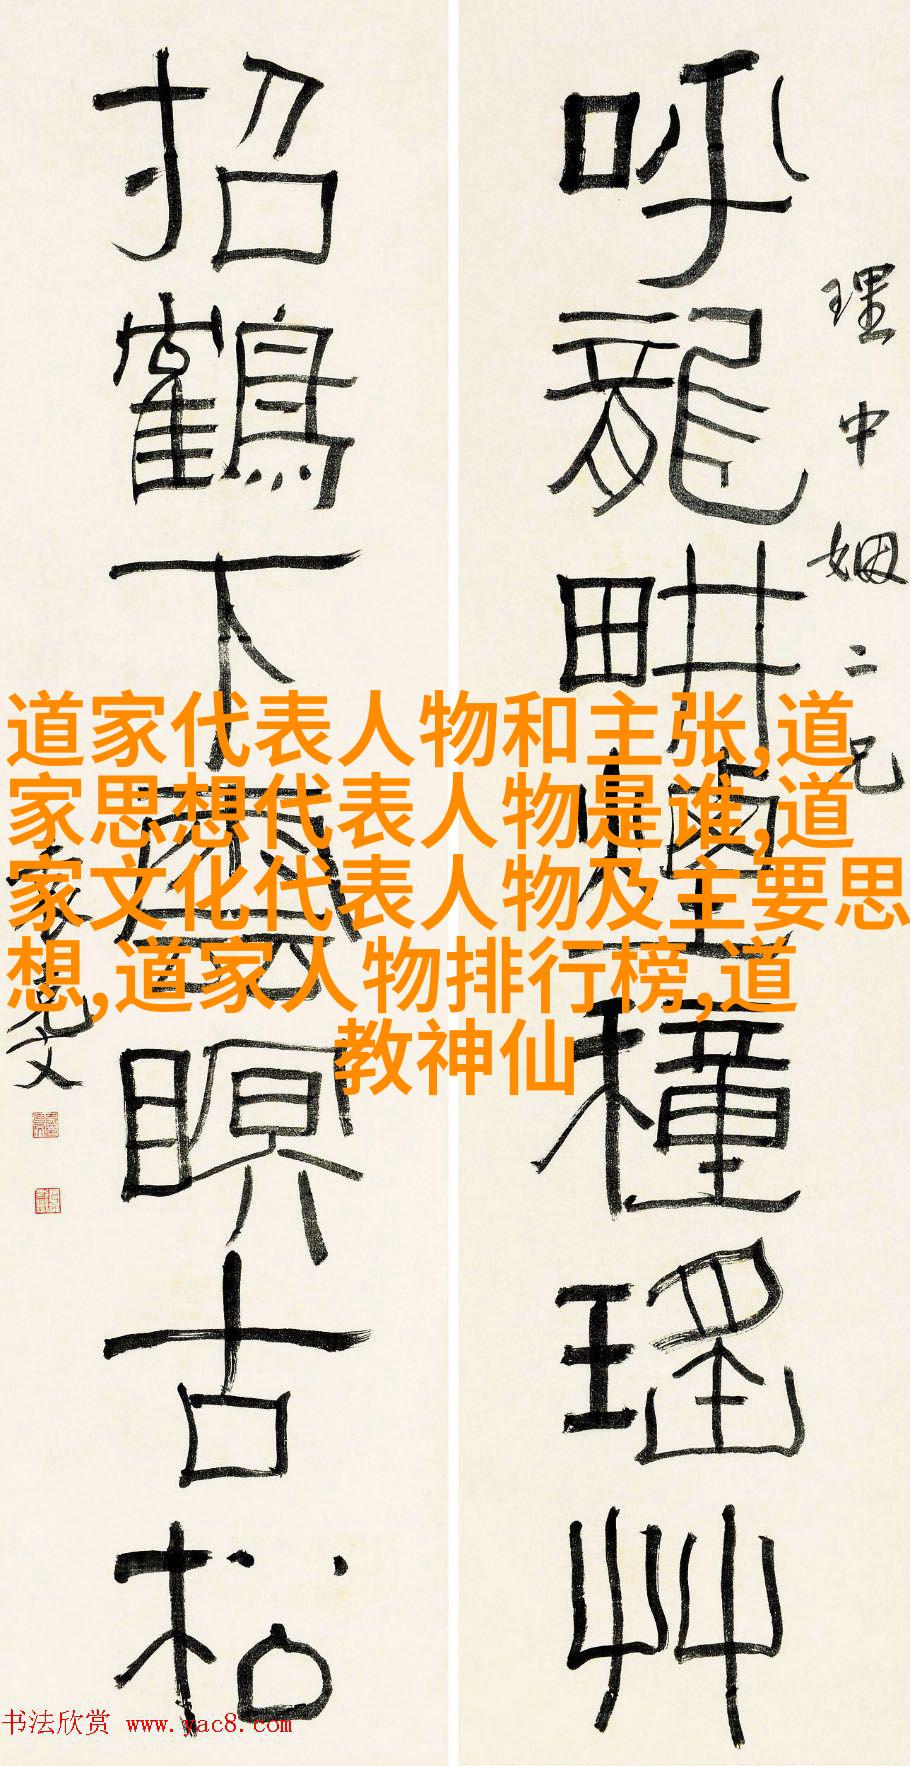 理中姻二兄
呼龍畊煙種瑤艸
招鶴下雲瞑古松
袁克文
道家代表人物和主张,道
家思想代表人物是谁,道
家文化代表人物及主要思
想,道家人物排行榜,道
教神仙
书法欣赏 www.yac8.com